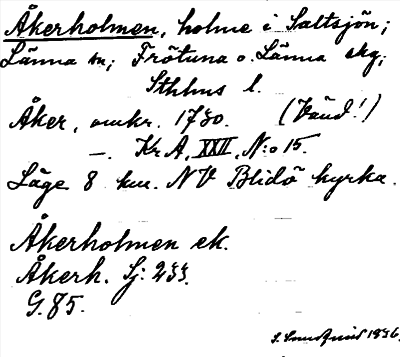 Åkerholmen, holme i Saltsjön;
Länna sn; Frötuna o. Länna skg;
Sthlms l.
Åker, omkr. 1730. (Vänd!)
—. Kr A, XXII, N:o 15.
Läge 8 km. NV Blidö kyrka.
Åkerholmen ek.
Åkerh. Sj: 233.
G. 85.
1936